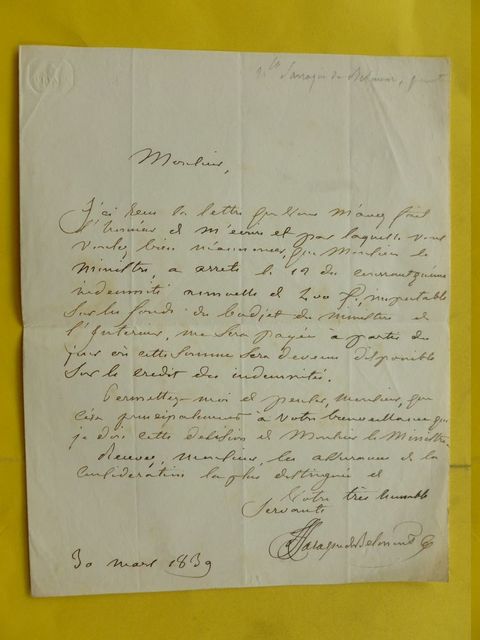 Monsieur,
J'ai reçu la lettre que vous m'avez fait
l'honneur de m'écrire et par laquelle vous
voulez bien m'annoncer, que Monsieur le
Ministre, a arrêté le 19 du courant qu'une
indemnité annuelle de 200 f, imputable
sur les fonds du budjet du Ministre de
l'Interieur, me sera payée à partir du
jour où cette somme sera devenue disponible
sur le credit des indemnités.
Permettez-moi de penser, Monsieur, que
c'est principalement à votre bienveillance que
je dois cette décision de Monsieur le Ministre
Recevez, Monsieur, les assurances de la
considération la plus distinguée de
Votre très humble
Servante
30 mars 1839